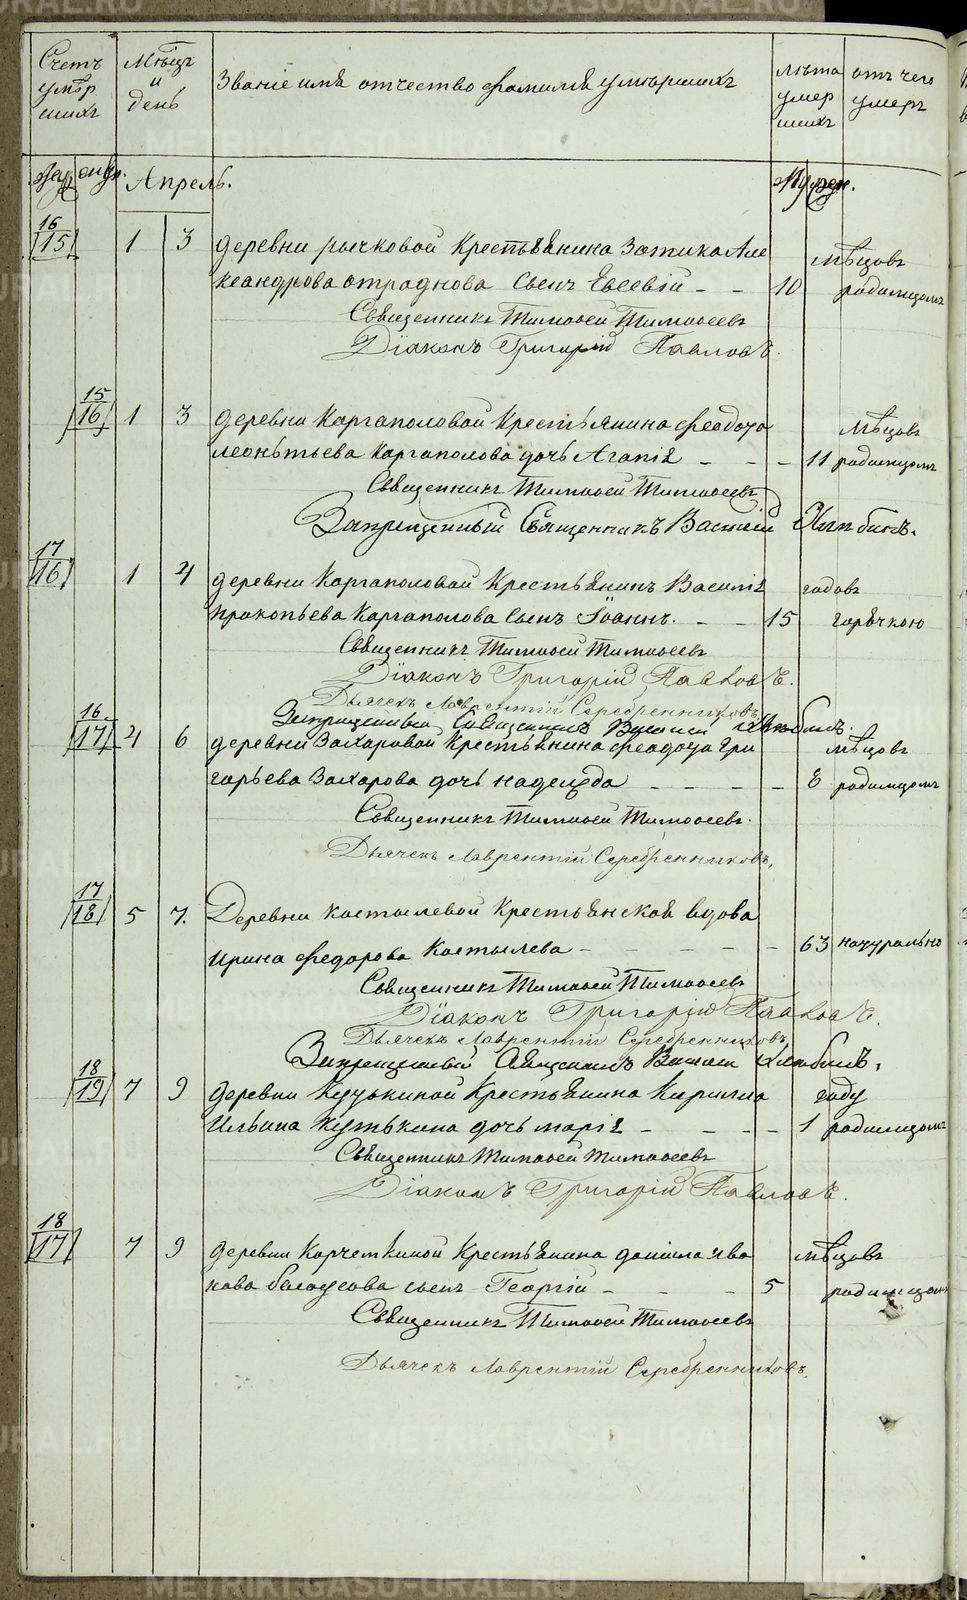 Счетъ умерших
Мѣсяц и день
Званіе имя отчество фамилія умершихъ
лѣта умер шихъ
отъ чего умеръ
Апрель.
16
15 1 3 деревни рычковой Крестьянина Але
ксандрова отраднова Сынъ Евсевій 10 мѣсцовъ родимцомъ
Священникъ Тимоѳей Тимоѳеевъ
Діаконъ Григорій Павловъ.
15
16 1 3 деревни Каргаполовой Крестьянина феодота мѣсцовъ
леонътьева Каргаполова дочь Агапія 11 родимцомъ
Священникъ Тимоѳей Тимоѳеевъ
Запрещенный Священникъ Василій
17
16 1 4 деревни Каргаполовой Крестьянинъ Василія годовъ
прокопьева Каргаполова Сынъ Іоаннъ. 15 горячкою
Священникъ Тимоѳей Тимоѳеевъ
Діаконъ Григорій Павловъ.
Дьячекъ Лаврентій Серебренниковъ
Запрещенный Священникъ Василій
16
17 4 6 деревни Захаровой Крестьянина феодота Гри мѣсцовъ
горьева Захарова дочь надежда 8 родимцомъ
Священникъ Тимоѳей Тимоѳеевъ.
Дьячекъ Лаврентій Серебренниковъ,
17
18 5 7. Деревни Костылевой Крестьянская вдова
Ирина федорова Костылева 63 натурально
Священникъ Тимоѳей Тимоѳеевъ
Діаконъ Григорій Павловъ.
Дьячекъ Лаврентій Серебренниковъ
Запрещенный Священникъ Василій
18
19 7 9 деревни Кутькиной Крестьянина Кирилла году
Ильина Кутькина дочь марія 1 родимцомъ
Священникъ Тимоѳей Тимоѳеевъ
Діаконъ Григорій Павловъ.
18
17 7 9 деревни Корчемкиной Крестьянина даніила Ива мѣсцовъ
нова сынъ Георгій 5 родимцомъ
Священникъ Тимоѳей Тимоѳеевъ
Дьячекъ Лаврентій Серебренниковъ.
METRIKI.GASO-URAL.RU